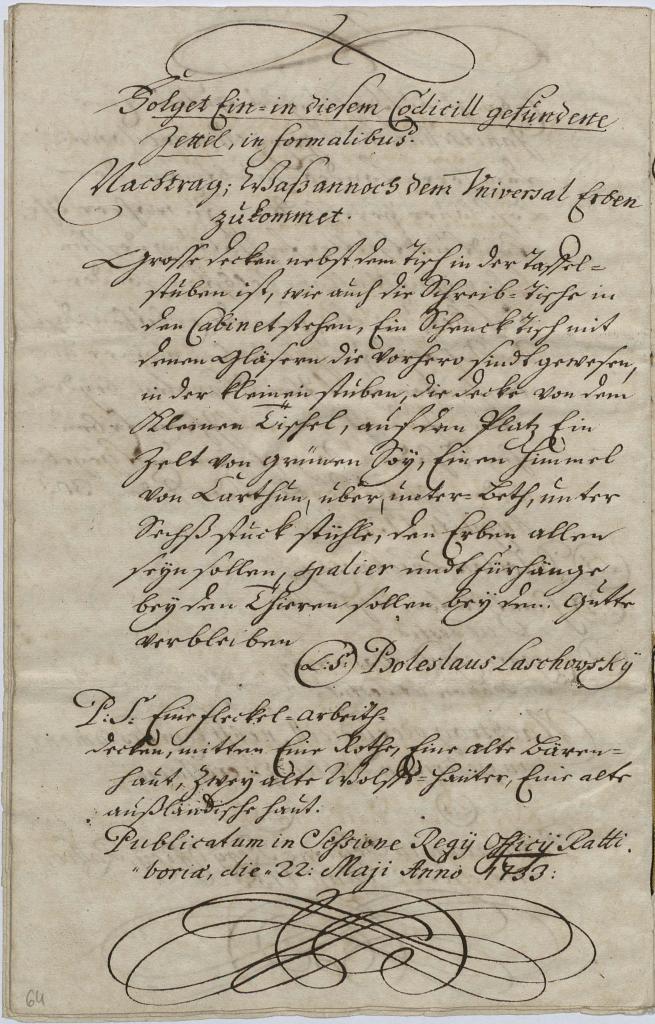 Folget Ein=in diesem Codicill gefundene
Zettel, in formalibus.
Nachtrag; Waß annoch dem Universal Erben
zukommet.
Grosse decken nebst dem Tisch in der Taffel=
stuben ist, wie auch die Schreib=Tische in
den Cabinet stehen, Ein Schenck Tisch mit
denen Gläsern die vorhero sindt gewesen,
in der kleinen stuben, die decke von dem
Kleinen Tischel, auf den Platz Ein
Zelt von grünen Soy, Einen Himmel
von Carthun, über, unter=Beth, unter
Sechß stuck stühle, den Erben allen
seyn sollen, spalier undt fürhänge
bey den Thieren sollen bey dem Gutte
verbleiben
(L:S:) Boleslaus Laschowsky
P:S: Eine fleckel=arbeith=
decken, mitten Eine Rothe, Eine alte Bären=
haut, Zwey alte Wolffs=häuter, Eine alte
außländische haut.
Publicatum in Sessione Regÿ Officÿ Ratti
boriæ, die 22: Maji Anno 1733:
64